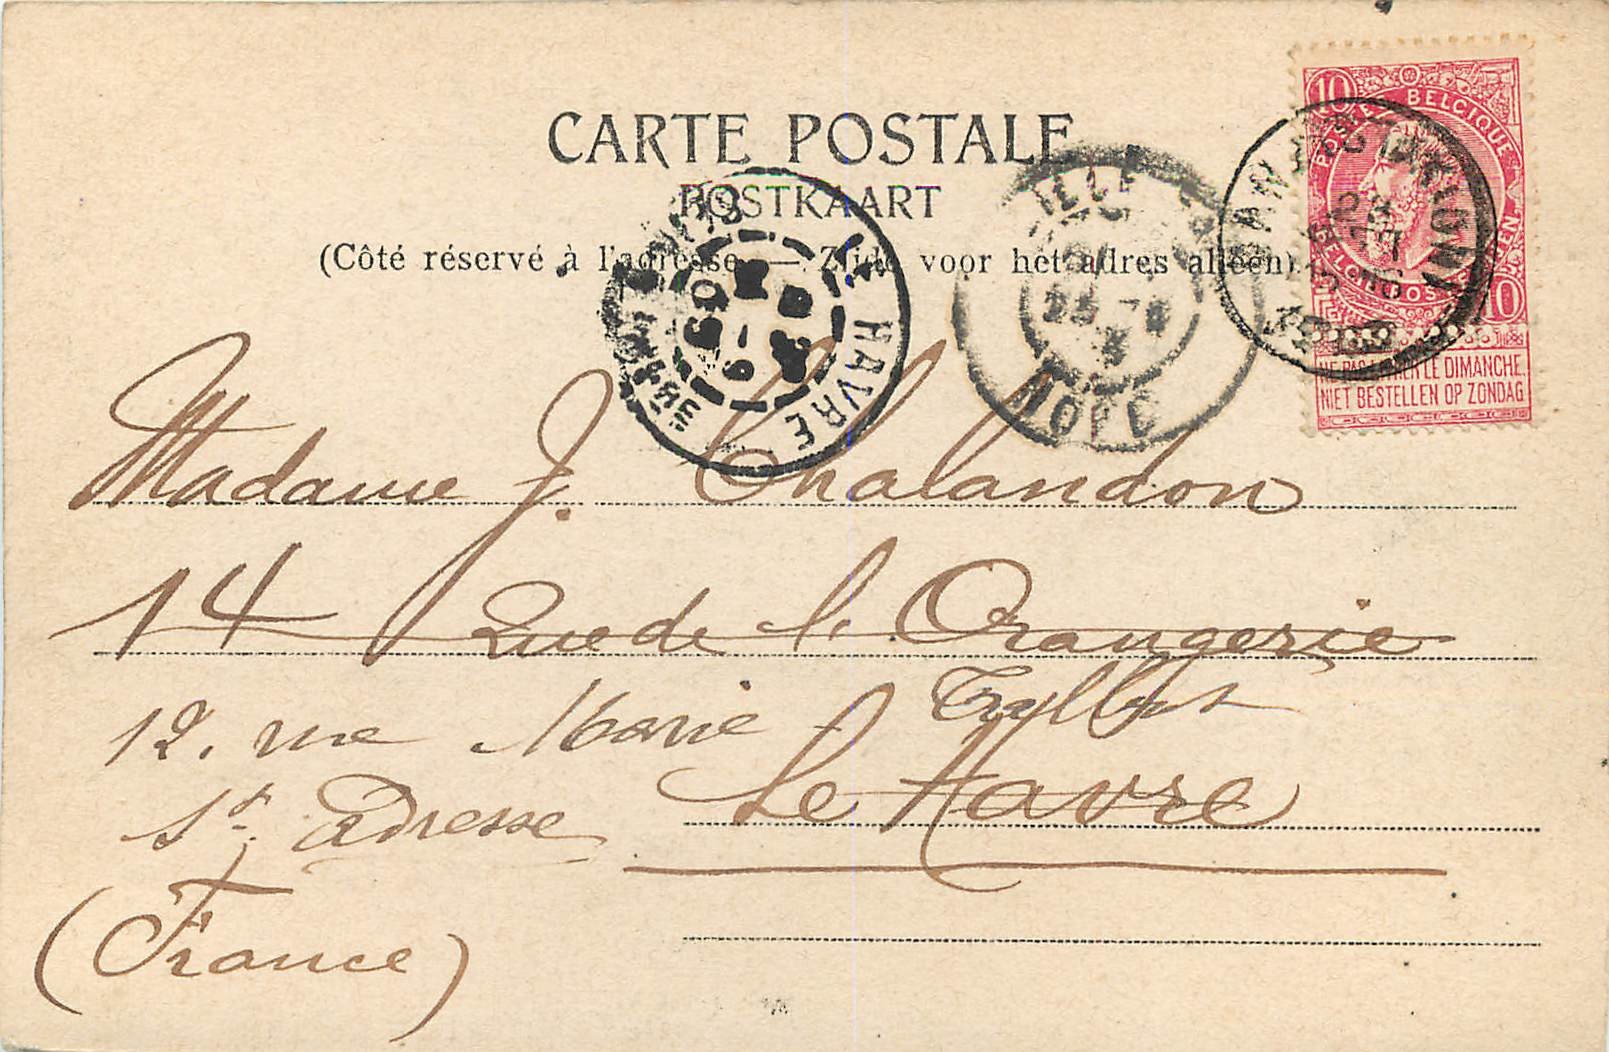 CARTE POSTALE
POSTKAART
(Côté réservé à l'adresse. — Zijde voor het adres alleen)
10 BELGIQUE
10
NE PAS LIVRER LE DIMANCHE
NIET BESTELLEN OP ZONDAG
LE HAVRE
NORD
Madame J. Chalandon
14 Rue de l'Orangerie
12, rue Marie
Le Havre
Ste Adresse
(France)